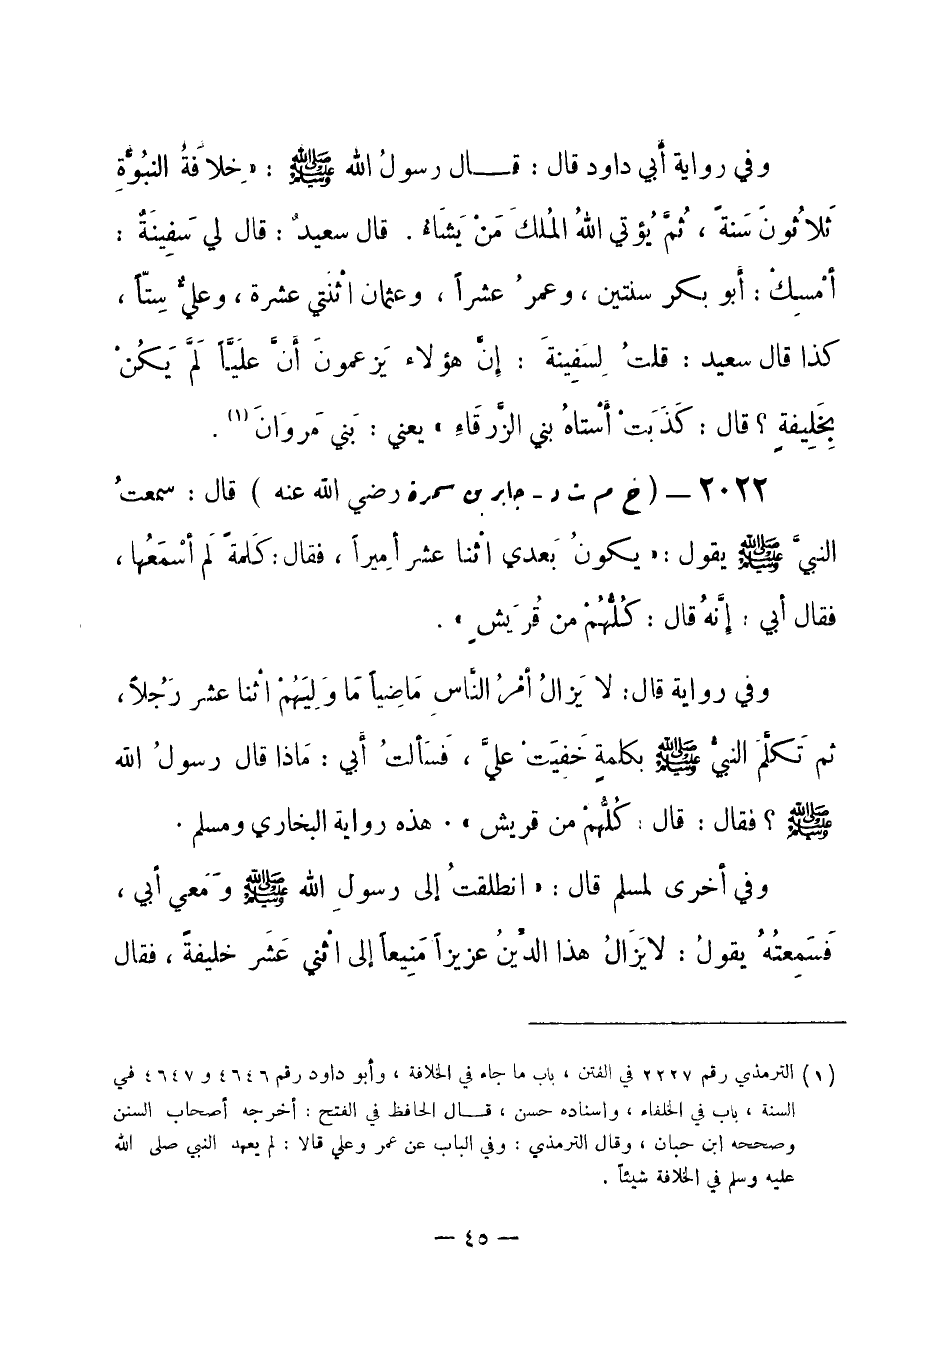 وفي رواية أبي داود قال : قـــال رسولُ الله ﷺ : « خِلافَةُ النبُوَّةِ
ثَلاثُونَ سَنَةً ، ثُمَّ يُؤتي اللهُ المُلكَ مَنْ يَشَاءُ . قال سعيدٌ : قال لي سَفِينَةُ :
أمْسِكْ : أبو بكر سنتين ، وعمرُ عشراً ، وعثمان اثْنَتي عشرة ، وعليٌّ سِتّاً ،
كذا قال سعيد : قلتُ لِسَفِينَةَ : إنَّ هؤلاء يَزعمونَ أنَّ عَلَيَّاً لَمَّ يَكُنْ
بِخَلِيفةٍ ؟ قال : كَذَبَتْ أسْتاهُ بني الزَّرقَاءِ » يعني : بَني مَروَانَ (١) .
٢٠٢٢ – ( خ م ت د - جابر بن سمرة رضي الله عنه ) قال : سمعتُ
النبيَّ ﷺ يقول : « يكونُ بَعدي اثنا عشر أميراً ، فقال : كَلمةً لم أسْمَعْها ،
فقال أبي : إنَّهُ قال : كُلُّهُمْ من قُرَيشٍ » .
وفي رواية قال : لا يَزالُ أمْرُ النَّاسِ مَاضِياً مَا وَلِيَهُمْ اثنا عشر رَجُلاً ،
ثم تَكلَّمَ النبيُّ ﷺ بكلمةٍ خَفِيَتْ عليَّ ، فَسَألتُ أبي : مَاذا قال رسولُ الله
ﷺ ؟ فقال : قال : كُلُّهمْ من قريش » . هذه رواية البخاري ومسلم .
وفي أخرى لمسلم قال : « انطلقتُ إلى رسولِ الله ﷺ وَمَعي أبي ،
فَسَمِعتُهُ يقولُ : لايَزَالُ هذا الدِّينُ عزيزاً مَنِيعاً إلى اثني عَشَر خليفةً ، فقال
(١) الترمذي رقم ٢٢٢٧ في الفتن ، باب ما جاء في الخلافة ، وأبو داود رقم ٤٦٤٦ و ٤٦٤٧ في
السنة ، باب في الخلفاء ، واسناده حسن ، قـــال الحافظ في الفتح : أخرجه أصحاب السنن
وصححه ابن حبان ، وقال الترمذي : وفي الباب عن عمر وعلي قالا : لم يعهد النبي صلى الله
عليه وسلم في الخلافة شيئاً .
– ٤٥ –